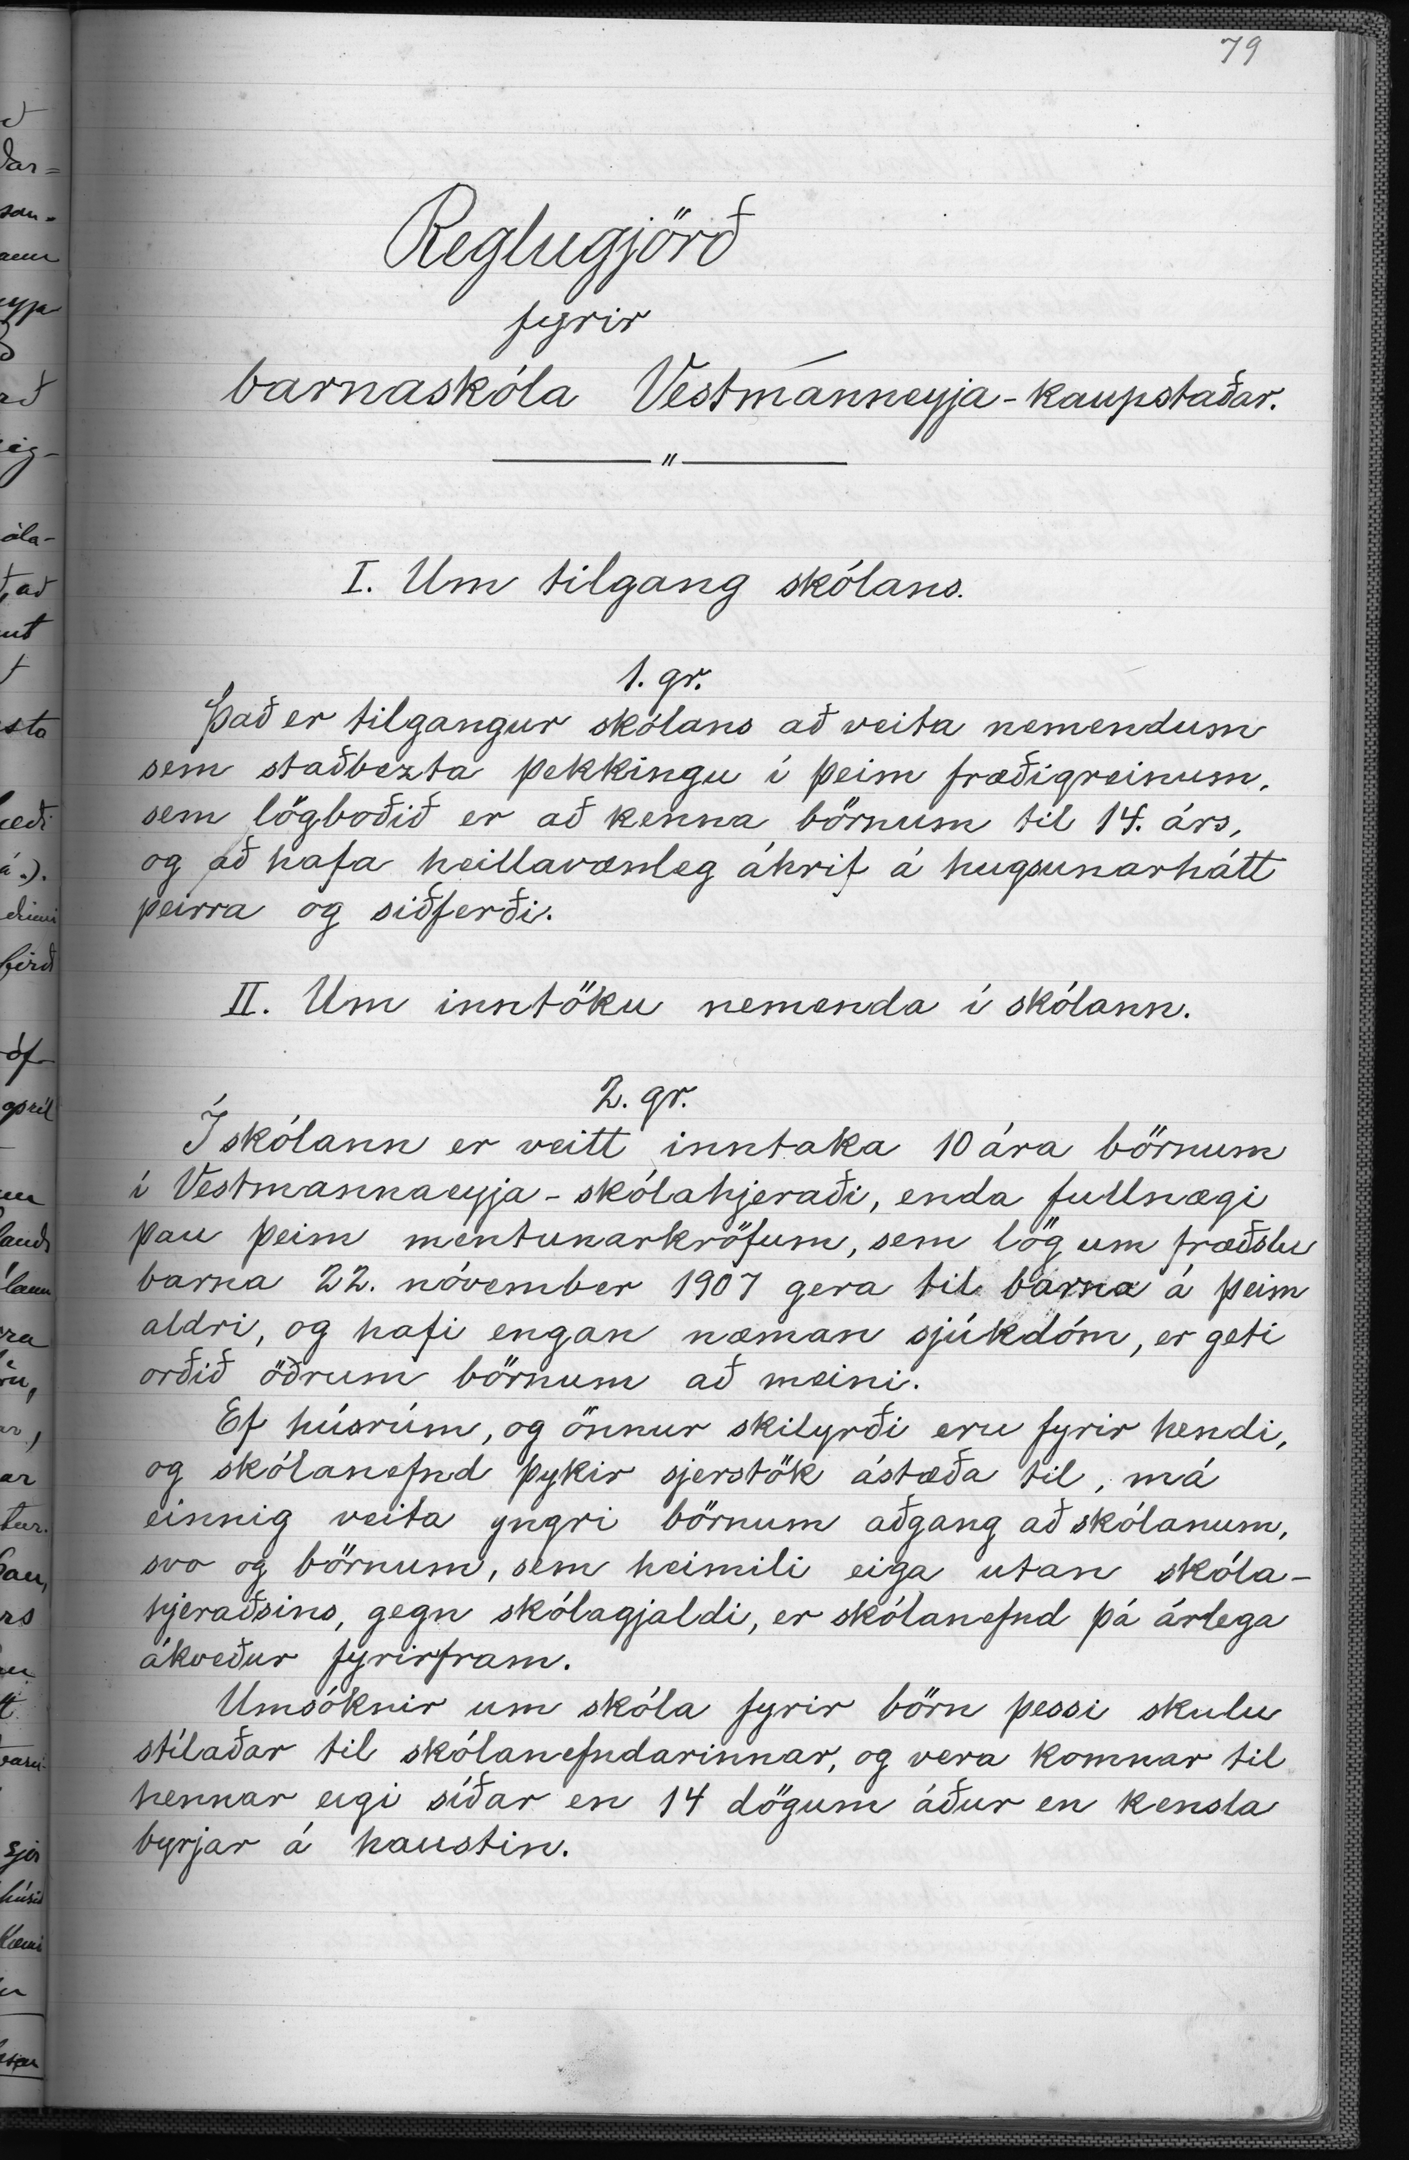 79
Reglugjörð
fyrir
barnaskóla Vestmanneyja-kaupstaðar.
"
I. Um tilgang skólans.
1. gr.
Það er tilgangur skólans að veita nemendum
sem staðbezta þekkingu í þeim fræðigreinum,
sem lögboðið er að kenna börnum til 14. árs,
og að hafa heillavænleg áhrif á hugsunarhátt
þeirra og siðferði.
II. Um inntöku nemenda í skólann.
2. gr.
Í skólann er veitt inntaka 10 ára börnum
í Vestmannaeyja-skólahjeraði, enda fullnægi
þau þeim mentunarkröfum, sem lög um fræðslu
barna 22. nóvember 1907 gera til barna á þeim
aldri, og hafi engan næman sjúkdóm, er geti
orðið öðrum börnum að meini.
Ef húsrúm, og önnur skilyrði eru fyrir hendi,
og skólanefnd þykir sjerstök ástæða til, má
einnig veita yngri börnum aðgang að skólanum,
svo og börnum, sem heimili eiga utan skóla-
hjeraðsins, gegn skólagjaldi, er skólanefnd þá árlega
ákveður fyrirfram.
Umsóknir um skóla fyrir börn þessi skulu
stílaðar til skólanefndarinnar, og vera komnar til
hennar eigi síðar en 14 dögum áður en kensla
byrjar á haustin.